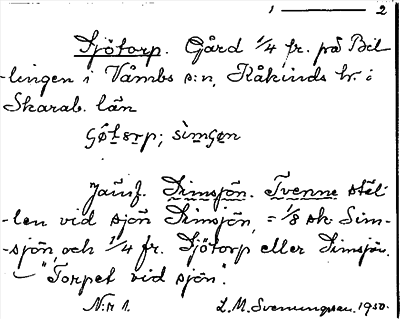 1 ——— 2
Sjötorp. Gård 1/4 fr. på Bil-
-lingen i Våmbs s:n, Kåkinds hr. i
Skarab. län
Jämf. Simsjön. Tvenne stäl-
-len vid sjön Simsjön, = 1/8 sk. Sim-
-sjön, och 1/4 fr. Sjötorp eller Simsjön.
— "Torpet vid sjön".
N:r 1. L. M. Svenungsson. 1930.